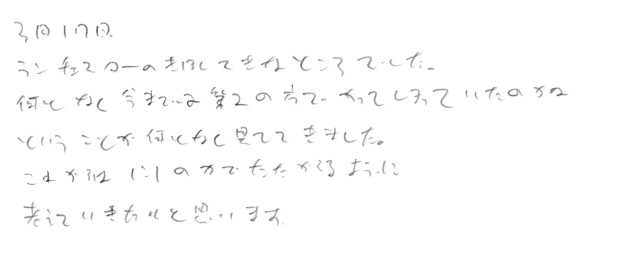 3月17日
ランチェスターのを出してきなところでした。
何となく今まではは第2の方でやってしまっていたのかな
ということが何となく見えてきました。
これからは1:1の力でたたかえるように
考えていきたいと思います